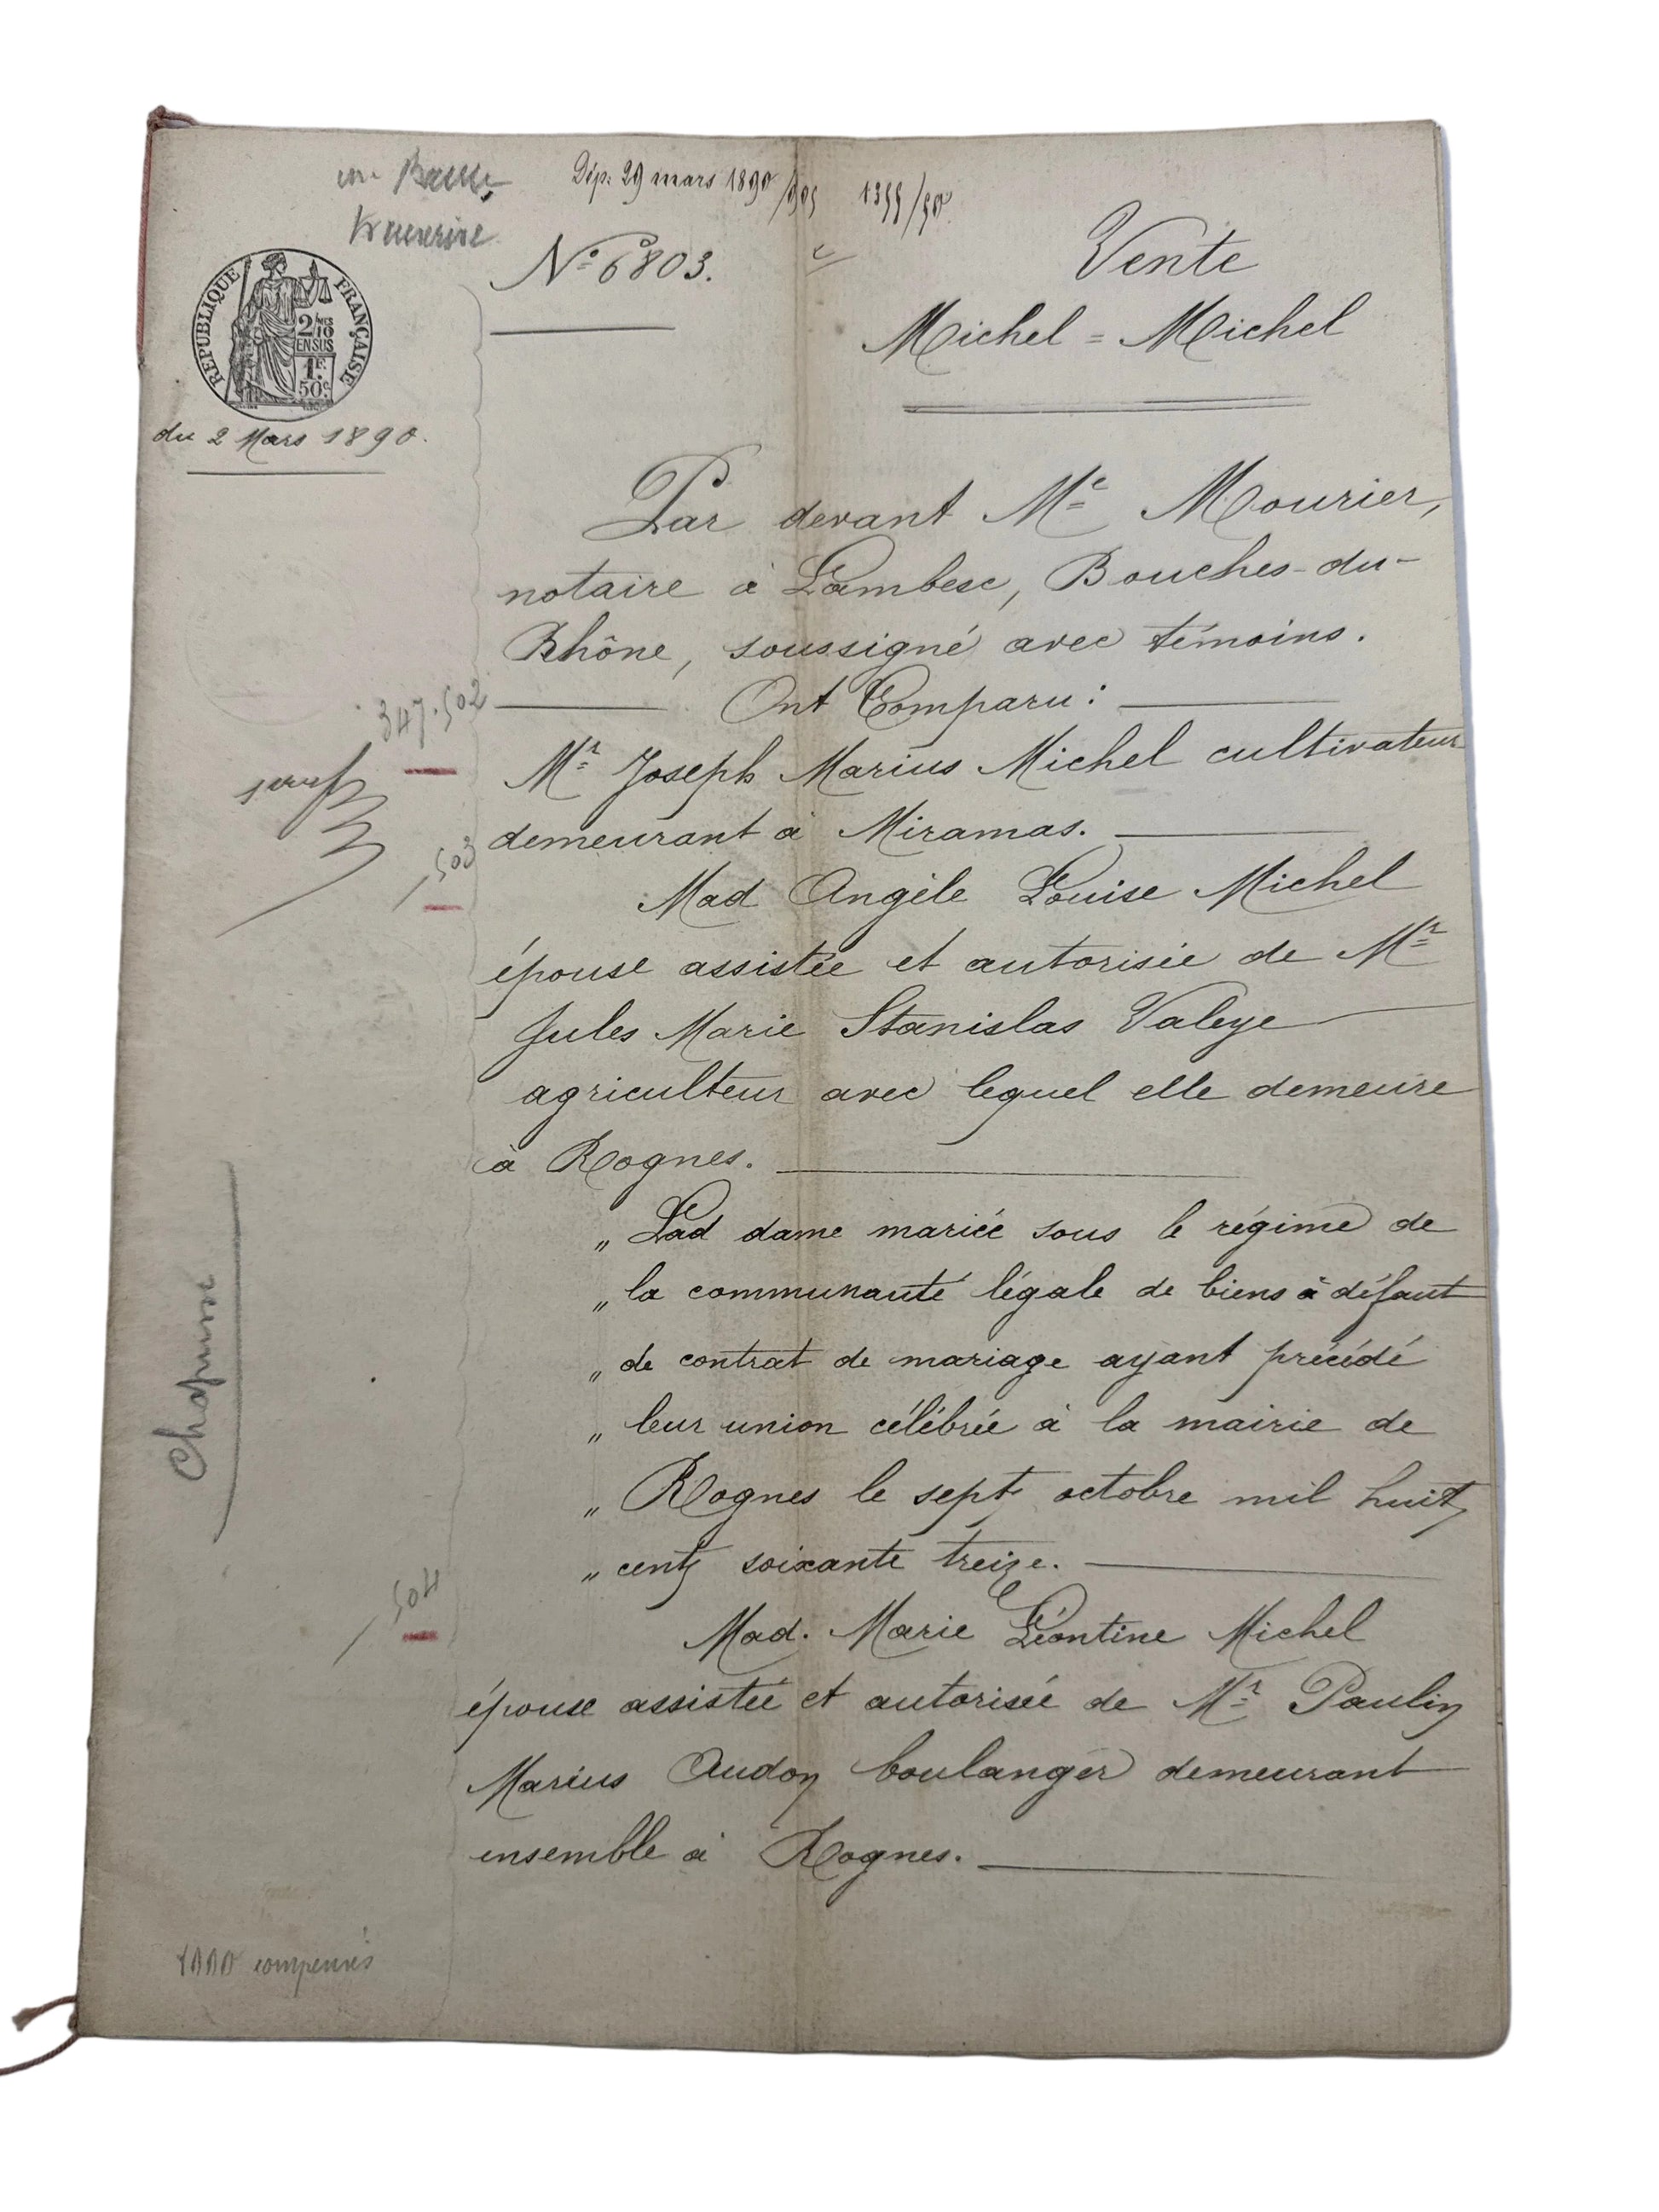 Dép: 29 mars 1890
Nº 6803.
Vente
Michel = Michel
RÉPUBLIQUE FRANÇAISE
2/10 EN SUS
1F. 50c.
du 2 Mars 1890.
Par devant Me Mourier,
notaire à Lambesc, Bouches-du-
Rhône, soussigné avec témoins.
Ont Comparu :
347.502
Mr Joseph Marius Michel cultivateur
demeurant à Miramas.
503
Mad Angèle Louise Michel
épouse assistée et autorisée de Mr
Jules Marie Stanislas Valeye
agriculteur avec lequel elle demeure
à Rognes.
„ Lad dame mariée sous le régime de
„ la communauté légale de biens à défaut
„ de contrat de mariage ayant précédé
„ leur union célébrée à la mairie de
„ Rognes le sept octobre mil huit
„ cent soixante treize.
504
Mad. Marie Léontine Michel
épouse assistée et autorisée de Mr Paulin
Marius Audon boulanger demeurant
ensemble à Rognes.